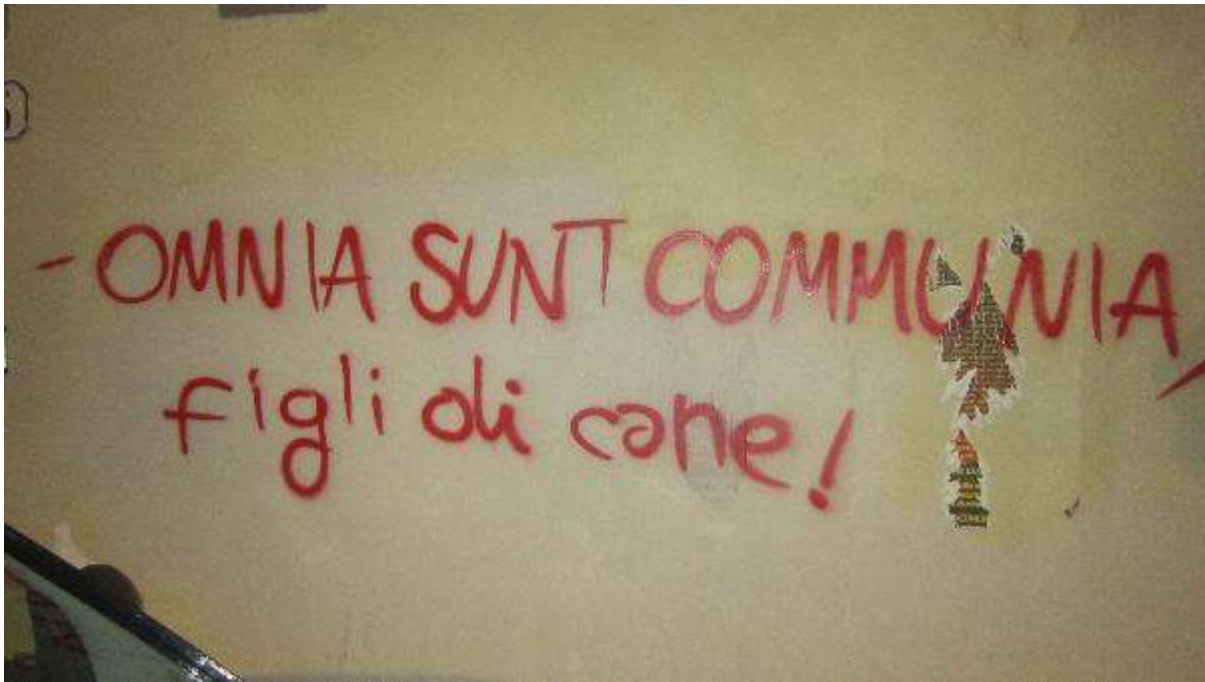 - OMNIA SUNT COMMUNIA,
figli di cane!